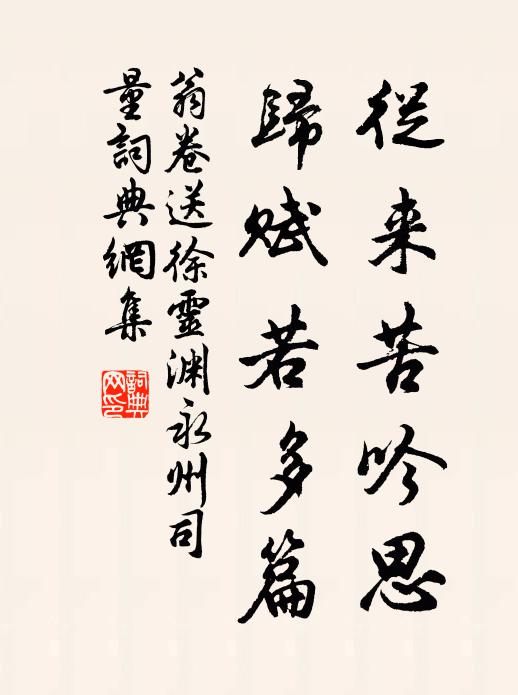 從来苦吟思
歸賦若多篇
翁卷送徐靈渊永州司
量詞典網集
詞典
网印